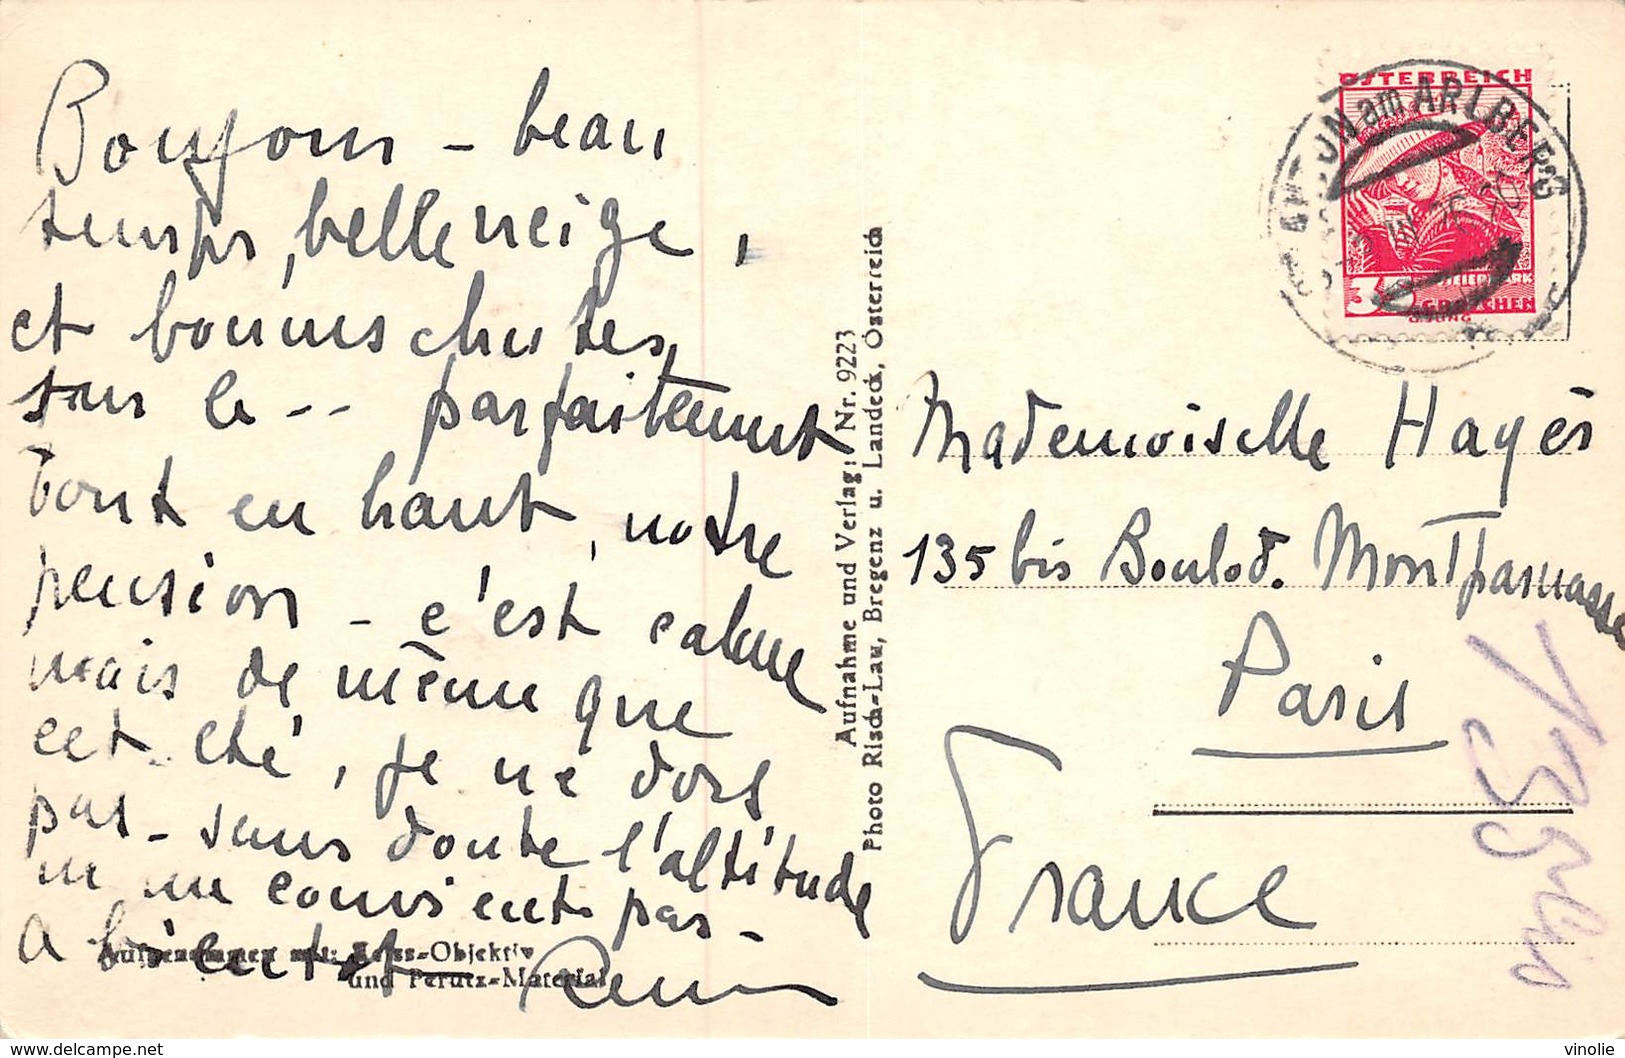 Bonjour - beau
temps, belle neige,
et bonnes chutes,
sur le -- parfaitement
Tout en haut, notre
pension - c'est calme
mais de même que
cet été, je ne dors
pas - sans doute l'altitude
ne me convient pas -
A bientôt
Aufgenommen mit: Zeiss-Objektiv
und Perutz-Material
Aufnahme und Verlag: Nr. 9223
Photo Risch-Lau, Bregenz u. Landeck, Österreich
ÖSTERREICH
ST. ANTON am ARLBERG
STEIERMARK
GROSCHEN
Mademoiselle Hayés
135 bis Boulvd. Montparnasse
Paris
France
135 bis
https://www.delcampe.net
vinolie